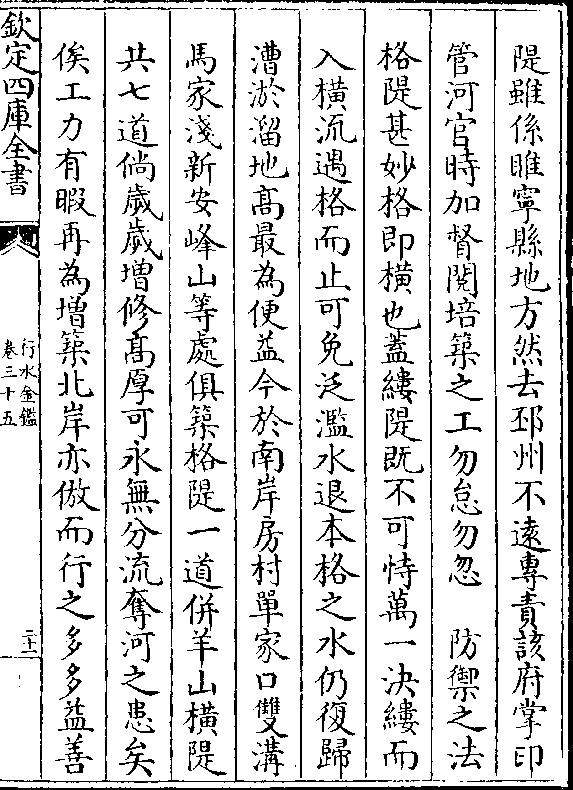 隄雖係睢寧縣地方然去邳州不遠專責該府掌印
管河官時加督閱培築之工勿怠勿忽　防禦之法
格隄甚妙格即橫也蓋縷隄既不可恃萬一決縷而
入橫流遇格而止可免泛濫水退本格之水仍復歸
漕淤溜地髙最為便益今於南岸房村單家口雙溝
馬家淺新安峰山等處俱築格隄一道併羊山橫隄
共七道倘歲歲增修髙厚可永無分流奪河之患矣
俟工力有暇再為增築北岸亦倣而行之多多益善
欽定四庫全書
行水金鑑
卷三十五
二十二